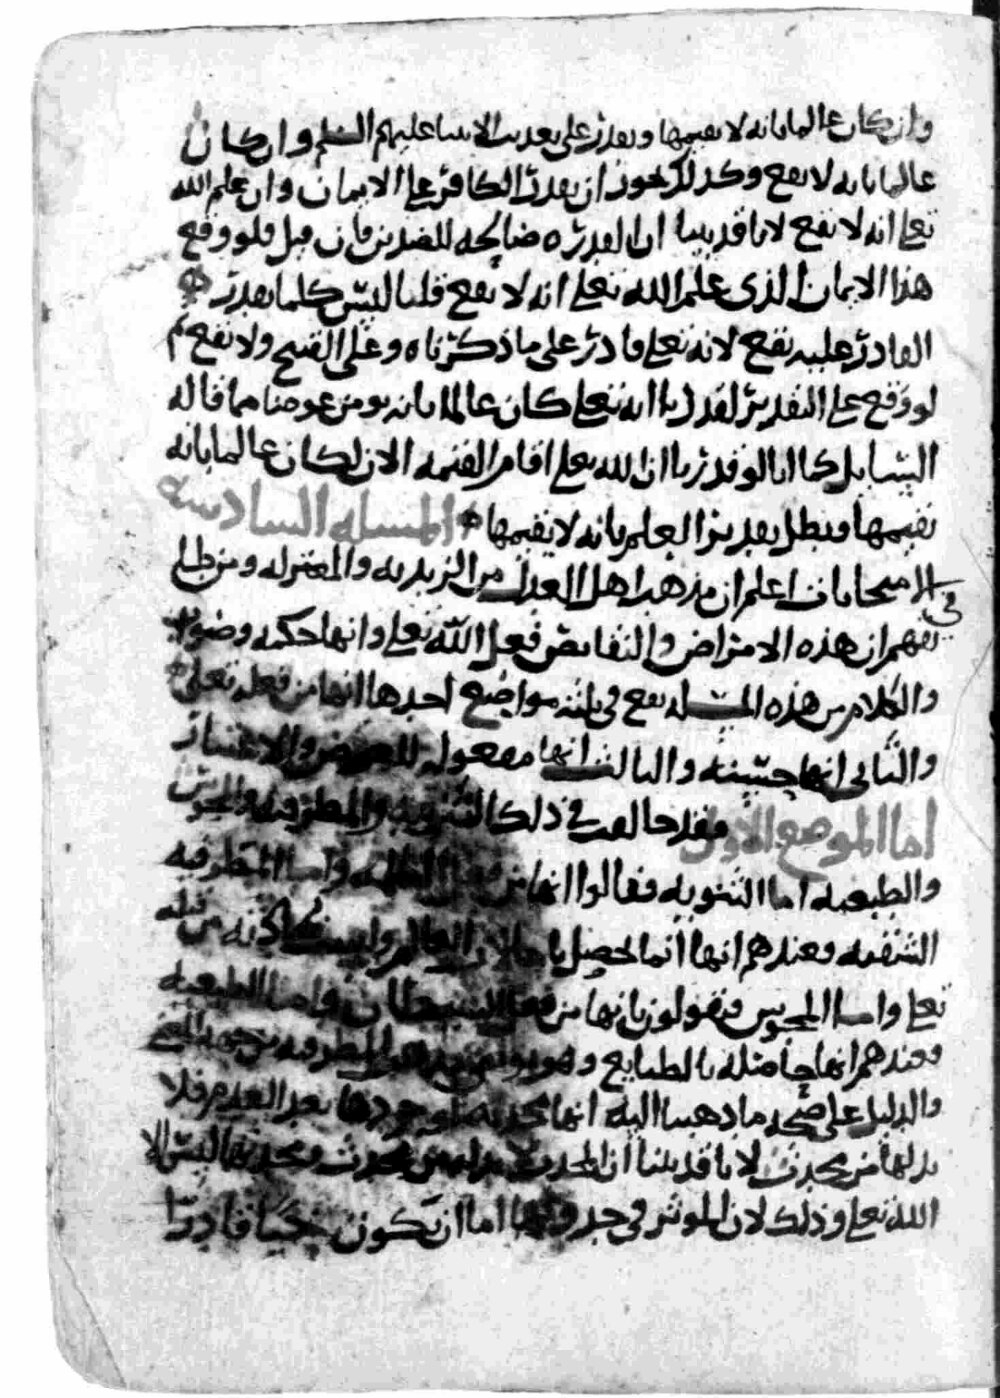 وان كان عالما بانه لا يقيمها ويقدر على تعذيب الانبيا عليهم السلم وان كان
عالما بانه لا يقع وكذلك يجوز ان يقدر الكافر على الايمان وان علم الله
تعلى انه لا يقع لانا قد بينا ان القدره صالحه للضدين فان قيل فلو وقع
هذا الايمان الذي علم الله تعلى انه لا يقع قلنا ليس كلما يقدر
القادر عليه يقع لانه تعلى قادر على ما ذكرناه وعلى القبيح ولا يقع ثم
لو وقع على التقدير لقدرنا انه تعلى كان عالما بانه يومن عوضا مما قاله
السايل كما انا لو قدرنا ان الله تعلى اقام القيمه الان لكان عالما بانه
يقيمها وبطل تقدير العلم بانه لا يقيمها المسله السادسه
في الامتحانات اعلم ان مذهب اهل العدل من الزيديه والمعتزله ومن طابقهم
ان هذه الامراض والنقايص فعل الله تعلى وانها حكمه وصواب
والكلام من هذه المسله يقع في ثلثه مواضع احدها انها من فعله تعلى
والثاني انها حسنه والثالث انها مفعوله للعوض والاعتبار
اما الموضع الاول فقد خالف في ذلك الثنويه والمطرفيه والمجوس
والطبعيه اما الثنويه فقالوا انها من الظلمه واما المطرفيه
الشقيه فعندهم انها انما تحصل باحالات العالم وليست من قبله
تعلى واما المجوس فيقولون بانها من فعل الشيطان واما الطبعيه
فعندهم انها حاصله بالطبايع وهو المطرفيه من جهه المعنى
والدليل على صحه ما ذهبنا اليه انها محدثه لوجودها بعد العدم فلا
بد لها من محدث لانا قد بينا ان المحدث لا بد له من محدث ومحدثها ليس الا
الله تعلى وذلك لان الموثر في حدوثها اما ان يكون حيا قادرا